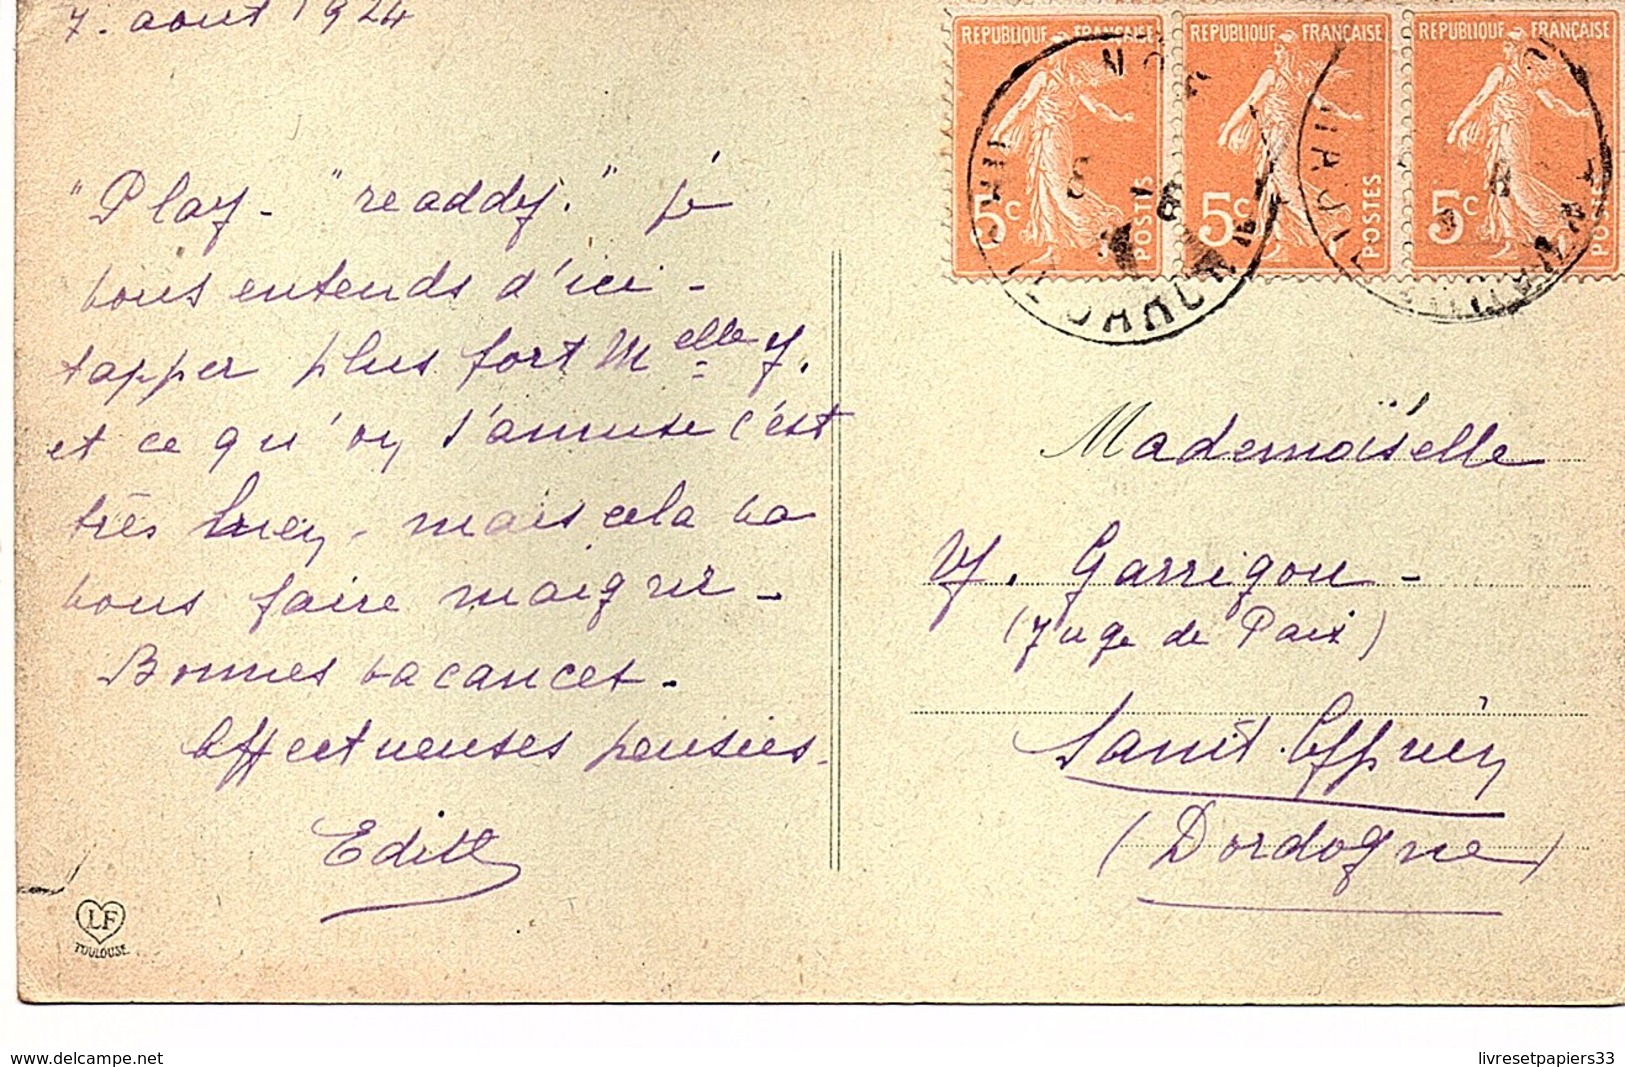 7. août 1924
"Play - "readdy." je
vous entends d'ici -
tapper plus fort Melle Y.
et ce qu'on s'amuse c'est
très bien - mais cela va
vous faire maigrir -
Bonnes vacances -
Affectueuses pensées.
Edith
LF
TOULOUSE
REPUBLIQUE FRANÇAISE
5c
POSTES
REPUBLIQUE FRANÇAISE
5c
POSTES
REPUBLIQUE FRANÇAISE
5c
POSTES
Mademoiselle
Y. Garrigou -
(Juge de Paix)
Saint-Cyprien
(Dordogne)
www.delcampe.net
livresetpapiers33